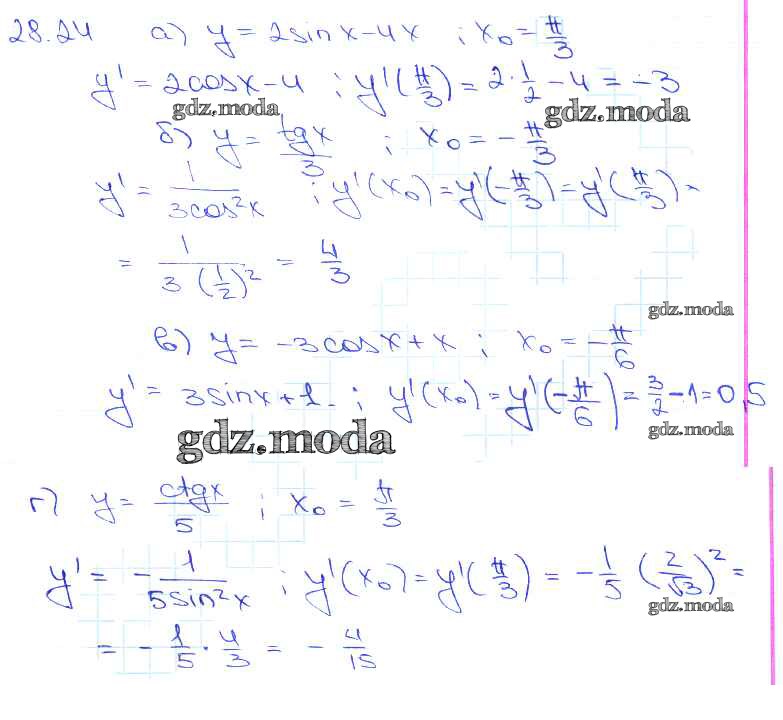 28.24 а) y = 2sinx - 4x ; x₀ = π/3
y' = 2cosx - 4 ; y'(π/3) = 2·1/2 - 4 = -3
gdz.moda gdz.moda
б) y = tgx/3 ; x₀ = -π/3
y' = 1/(3cos²x) ; y'(x₀) = y'(-π/3) = y'(π/3) =
= 1/(3(1/2)²) = 4/3
gdz.moda
в) y = -3cosx + x ; x₀ = -π/6
y' = 3sinx + 1. ; y'(x₀) = y'(-π/6) = 3/2 - 1 = 0,5
gdz.moda gdz.moda
г) y = ctgx/5 ; x₀ = π/3
y' = -1/(5sin²x) ; y'(x₀) = y'(π/3) = -1/5 (2/√3)² =
gdz.moda
= -1/5 · 4/3 = -4/15